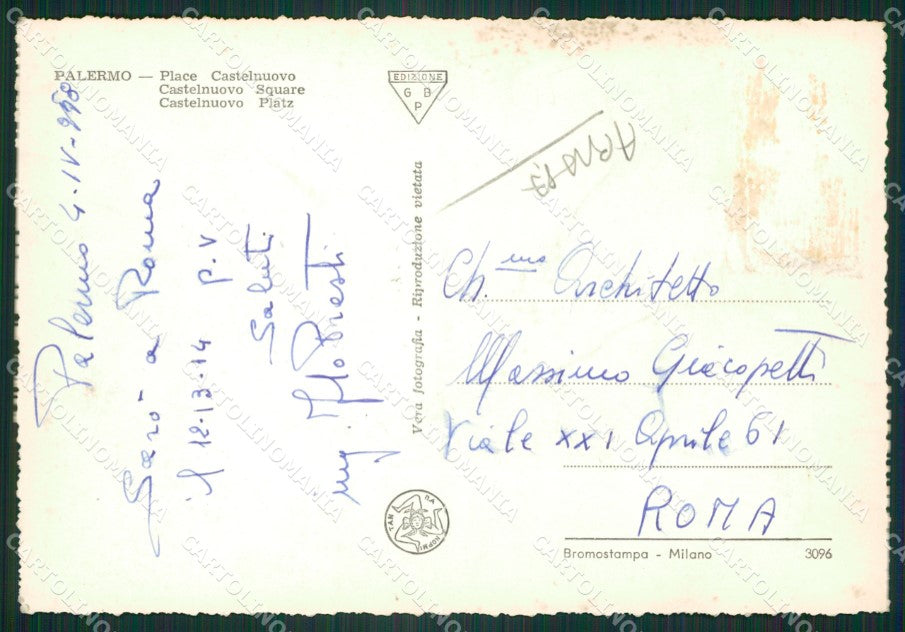 PALERMO — Place Castelnuovo
Castelnuovo Square
Castelnuovo Platz
EDIZIONE
G B
P
Palermo 4-IV-958
Sarò a Roma
il 12-13-14 p.v
Saluti
ing. Lo Presti
Vera fotografia - Riproduzione vietata
Ch.mo Architetto
Massimo Giacopetti
Viale XXI Aprile 61
ROMA
Bromostampa - Milano
3096
CARTOLINOMANIA